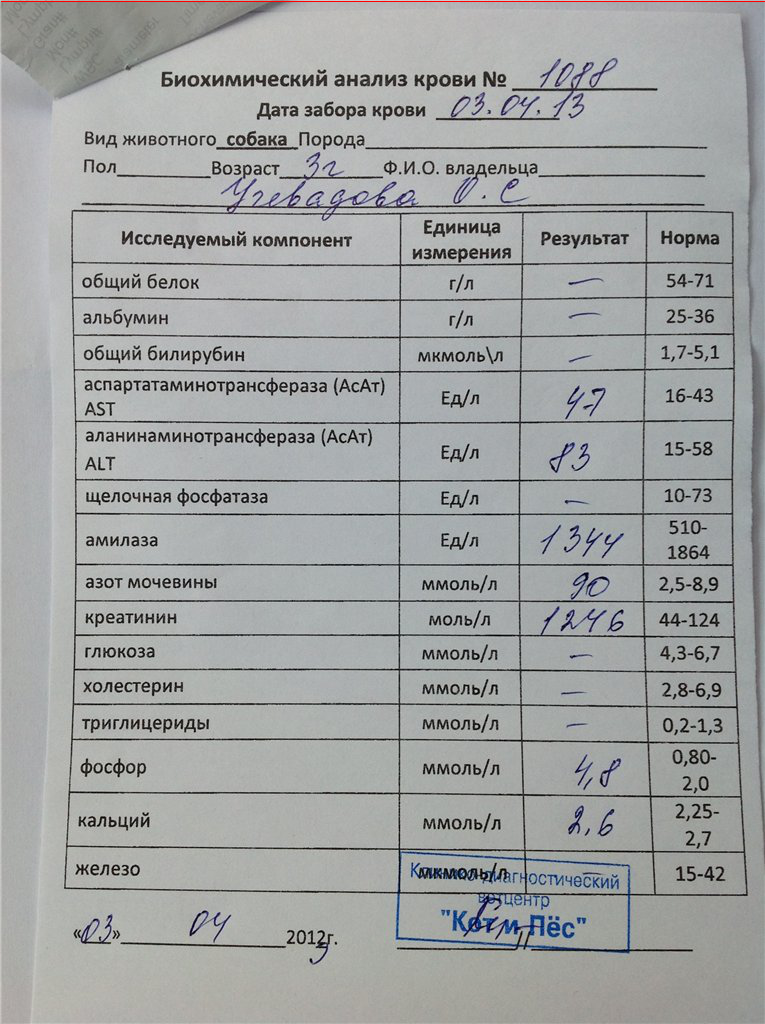 Биохимический анализ крови № 1088
Дата забора крови 03.04.13
Вид животного собака Порода
Пол Возраст 3г Ф.И.О. владельца
О. С
Исследуемый компонент Единица измерения Результат Норма
общий белок г/л — 54-71
альбумин г/л — 25-36
общий билирубин мкмоль\л — 1,7-5,1
аспартатаминотрансфераза (АсАт) AST Ед/л 47 16-43
аланинаминотрансфераза (АсАт) ALT Ед/л 83 15-58
щелочная фосфатаза Ед/л — 10-73
амилаза Ед/л 1344 510-1864
азот мочевины ммоль/л 90 2,5-8,9
креатинин моль/л 1246 44-124
глюкоза ммоль/л — 4,3-6,7
холестерин ммоль/л — 2,8-6,9
триглицериды ммоль/л — 0,2-1,3
фосфор ммоль/л 4,8 0,80-2,0
кальций ммоль/л 2,6 2,25-2,7
железо мкмоль/л — 15-42
Клинико-диагностический
ветцентр
"Кот и Пёс"
«03» 04 2013г.